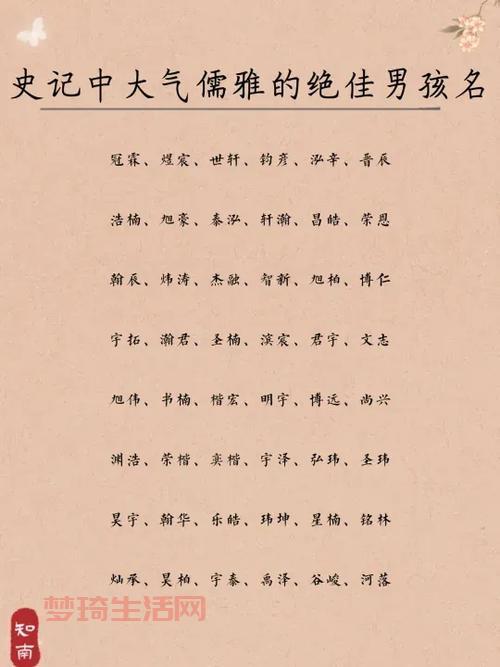 史记中大气儒雅的绝佳男孩名
冠霖、煜宸、世轩、钧彦、泓辛、晋辰
浩楠、旭豪、泰泓、轩瀚、昌皓、荣恩
翰辰、炜涛、杰融、智新、旭柏、博仁
宇拓、瀚君、圣楠、滨宸、君宇、文志
旭伟、书楠、楷宏、明宇、博远、尚兴
渊浩、荣楷、奕楷、宇泽、弘玮、圣玮
昊宇、翰华、乐皓、玮坤、星楠、铭林
灿承、昊柏、宇泰、禹泽、谷峻、河落
梦琦生活网
知南